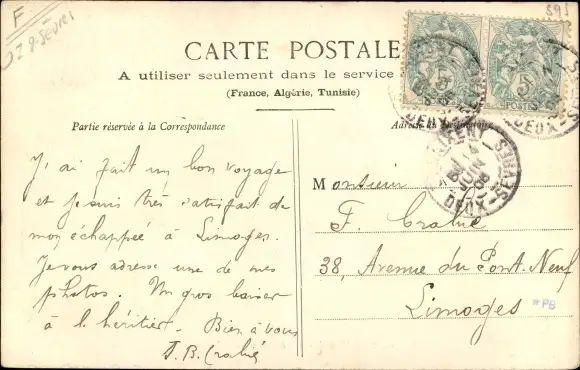 F
D 2-Sèvres
593
CARTE POSTALE
A utiliser seulement dans le service
(France, Algérie, Tunisie)
Partie réservée à la Correspondance
Adresse du Destinataire
5
5
POSTES
DEUX-S
DEUX-SÈVRES
JUIN
J'ai fait un bon voyage
et je suis très satisfait de
mon échappée à Limoges.
Je vous adresse une de mes
photos. Un gros baiser
à l'héritier. Bien à vous
Monsieur
F.
38, Avenue du Pont-Neuf
Limoges
*PB